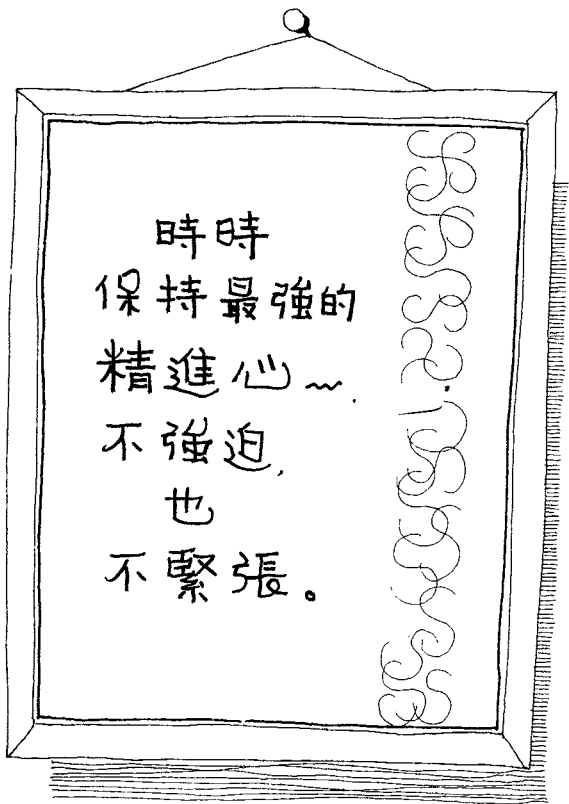 時時
保持最強的
精進心～
不強迫,
也
不緊張。